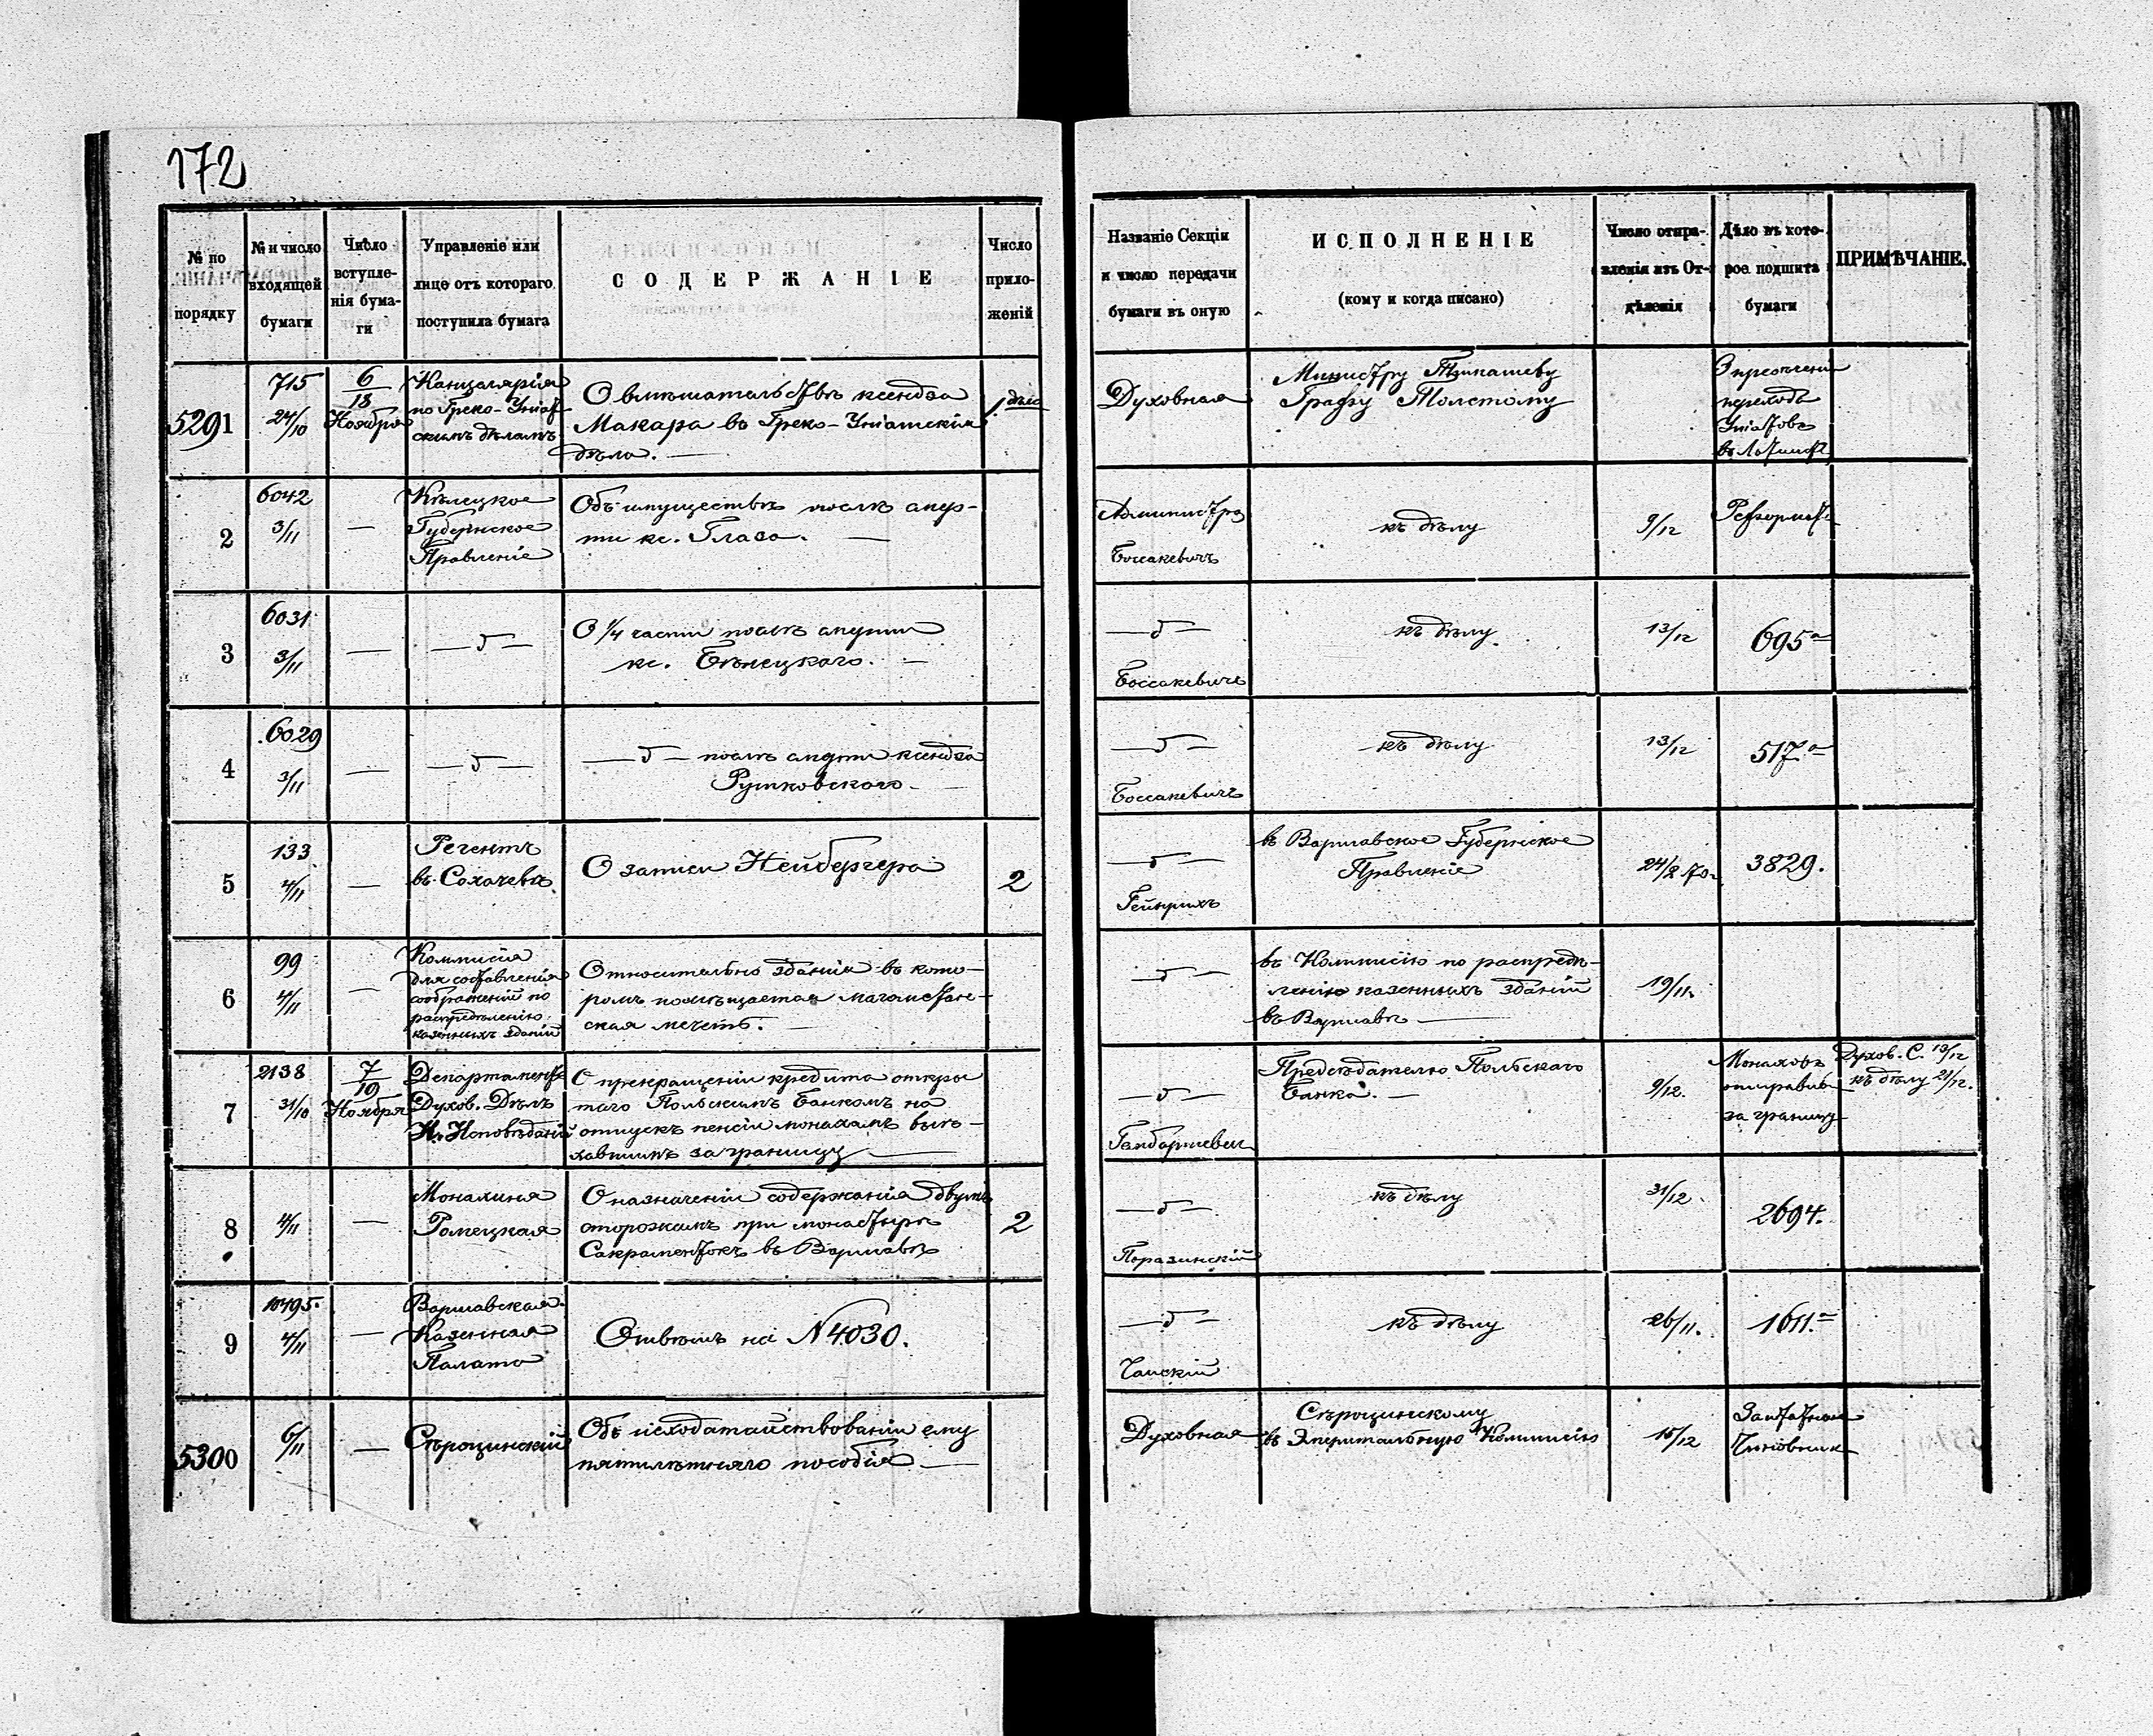 172
№ по
порядку
№ и число
входящей
бумаги
Число
вступле-
нія бума-
ги
Управленіе или
лице отъ котораго
поступила бумага
СОДЕРЖАНІЕ
Число
прило-
женій
Названіе Секціи
и число передачи
бумаги въ оную
ИСПОЛНЕНІЕ
(кому и когда писано)
Число отпра-
вленія изъ От-
дѣленія
Дѣло въ кото-
рое подшита
бумаги
ПРИМѢЧАНІЕ.
5291
715
24/10
6/18
Ноября
Канцелярія
по Греко-Уніат
скимъ дѣламъ
О вмѣшательствѣ ксендза
Макара въ Греко-Уніатскія
дѣла. —
1 дѣло
Духовная
Министру Тимашеву
Графу Толстому
О пресѣченіи
перехода
Уніатовъ
въ Латинст
2
6042
3/11
—
Кѣлецкое
Губернское
Правленіе
Объ имуществѣ послѣ смер-
ти кс. Глаза. —
Администра
Боссакевичъ
къ дѣлу
9/12
Реформаты
3
6031
3/11
—
— „ —
О 1/4 части послѣ смерти
кс. Бѣнецкаго. —
— „ —
Боссакевичъ
къ дѣлу.
13/12
695 а
4
6029
3/11
—
— „ —
— „ — послѣ смерти ксендза
Рутковскаго —
— „ —
Боссакевичъ
къ дѣлу
13/12
517 а
5
133
4/11
—
Регентъ
въ Сохачевѣ.
О записи Нейбергера
2
— „ —
Гейнрихъ
въ Варшавское Губернское
Правленіе
24/2 70 г.
3829.
6
99
4/11
—
Коммисія
для составленія
соображеній по
распредѣленію
казенныхъ зданій
Относительно зданія въ кото-
ромъ помѣщается магометан-
ская мечеть. —
— „ —
въ Коммисію по распредѣ-
ленію казенныхъ зданій
въ Варшавѣ —
19/11.
7
2138
31/10
7/19
Ноября
Департаментъ
Духов. Дѣлъ
Ин. Исповѣданій
О прекращеніи кредита откры
таго Польскимъ Банкомъ на
отпускъ пенсіи монахамъ выѣ-
хавшимъ за границу —
— „ —
Предсѣдателю Польскаго
Банка. —
9/12.
Монаховъ
отправив
за границу
Духов. С. 19/12
къ дѣлу 21/12.
8
4/11
—
Монахиня
Ромецкая
О назначеніи содержанія двумъ
сторожамъ при монастырѣ
Сакраментокъ въ Варшавѣ
2
— „ —
Поразинскій
къ дѣлу
31/12.
2694.
9
10495.
4/11
—
Варшавская
Казенная
Палата
Отвѣтъ на № 4030.
— „ —
къ дѣлу
26/11.
1611. а
5300
6/11
—
Сѣроцинскій
Объ исходатайствованіи ему
пятилѣтняго пособія —
Духовная
Сѣроцинскому
въ Эмеритальную Коммисію
15/12
Заштатные
Чиновник